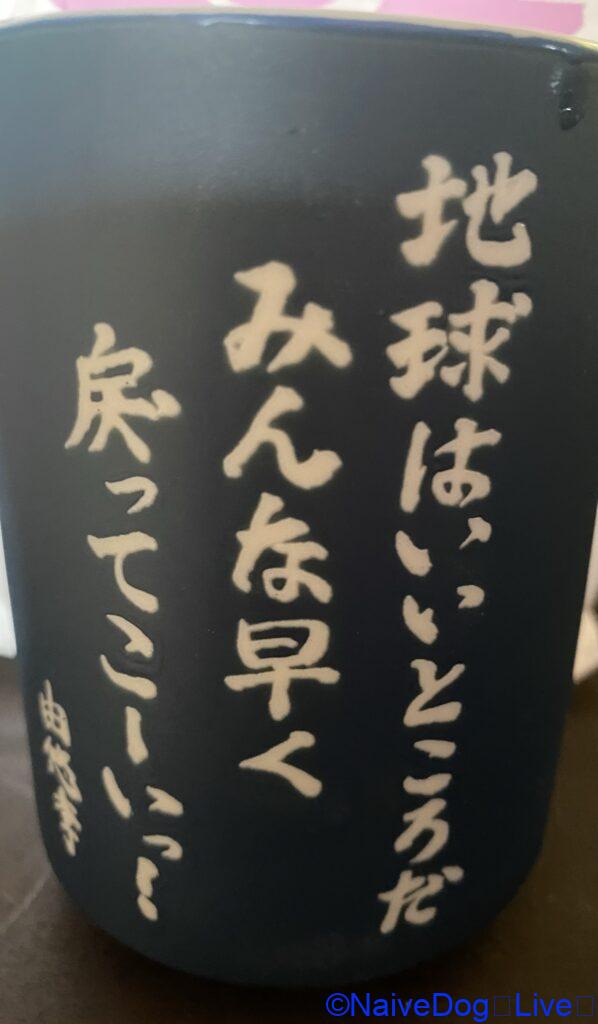 地球はいいところだ
みんな早く
戻ってこーいっ!
©NaiveDog□Live□